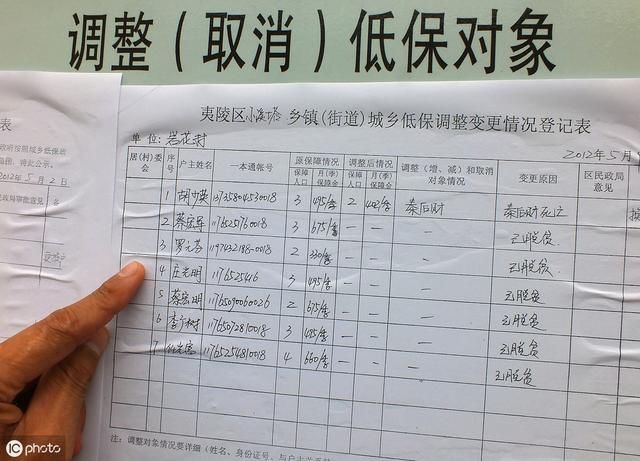 调整（取消）低保对象
夷陵区 小溪塔 乡镇(街道)城乡低保调整变更情况登记表
单 位: 岩花村
2012年5月
居(村)委会 序号 户主姓名 一本通帐号 原保障情况 调整后情况 调整（增、减）和取消对象情况 变更原因 区民政局意见
保障人口 月(季)保障金 保障人口 月(季)保障金
1 3 495/季 2 秦后财 秦后财死亡
2 蔡宏 3 675/季 — — — 已脱贫
3 罗 2 330/季 — — — 已脱贫
4 庄光明 1176525416 3 495/季 — — — 已脱贫
5 蔡宏明 2 675/季 — — — 已脱贫
6 李 村 11765072810018 3 495/季 — — — 已脱贫
7 11765254810018 4 660/季 — — — 已脱贫
注: 调整对象情况要详细（姓名、身份证号、与户主关系
表
政府按照城乡低保政
将此公示。
2012年5月2日
民政局审批意见
iC photo